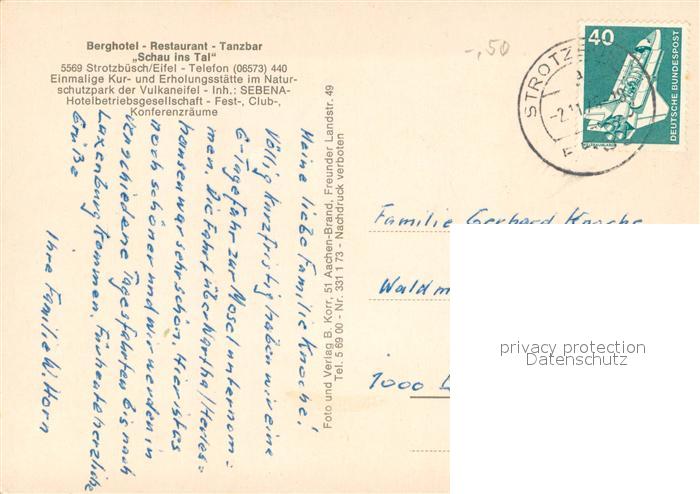 Berghotel - Restaurant - Tanzbar
„Schau ins Tal"
5569 Strotzbüsch/Eifel - Telefon (06573) 440
Einmalige Kur- und Erholungsstätte im Natur-
schutzpark der Vulkaneifel - Inh.: SEBENA-
Hotelbetriebsgesellschaft - Fest-, Club-,
Konferenzräume
Meine liebe Familie Knoche!
Völlig kurzfristig haben wir eine
6-Tagefahrt zur Mosel unternom-
men. Die Fahrt über
hausen war sehr schön. Hier ist es
noch schöner und wir werden in
verschiedene Tagesfahrten bis nach
Luxenburg kommen. Für heute herzliche
Grüße
Ihre Familie W. Horn
Foto und Verlag B. Korr, 51 Aachen-Brand, Freunder Landstr. 49
Tel. 5 69 00 - Nr. 331 1 73 - Nachdruck verboten
-,50
40
DEUTSCHE BUNDESPOST
STROTZ
-2.11
Familie Gerhard Knoche
Waldm
1000
privacy protection
Datenschutz